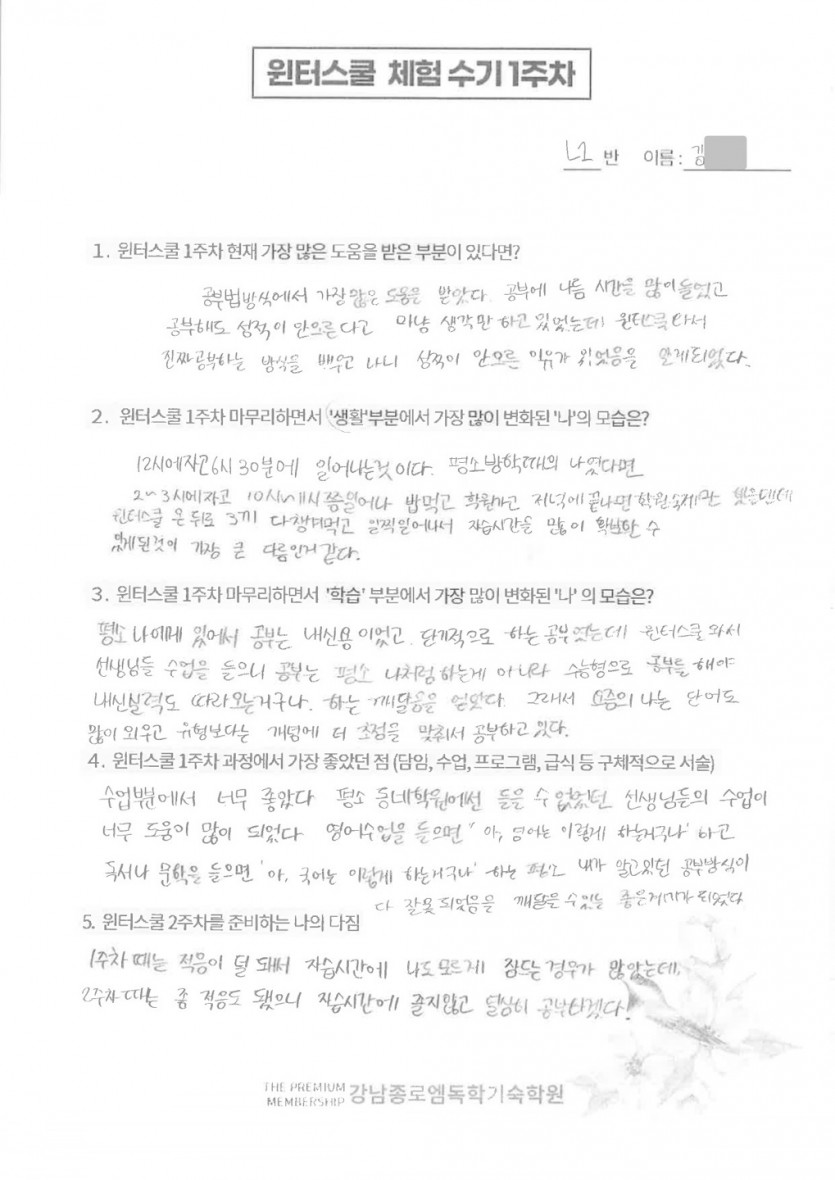 윈터스쿨 체험 수기 1주차
L1 반 이름 : 김
1. 윈터스쿨 1주차 현재 가장 많은 도움을 받은 부분이 있다면?
공부법방식에서 가장 많은 도움을 받았다. 공부에 나름 시간을 많이 들였고
공부해도 성적이 안오른다고 마냥 생각만 하고 있었는데 윈터스쿨 와서
진짜공부하는 방식을 배우고 나니 성적이 안오른 이유가 있었음을 알게되었다.
2. 윈터스쿨 1주차 마무리하면서 '생활'부분에서 가장 많이 변화된 '나'의 모습은?
12시에자고 6시 30분에 일어나는것이다. 평소방학때의 나였다면
2~3시에자고 10시 쯤일어나 밥먹고 학원가고 저녁에 끝나면 학원숙제만 했을텐데
윈터스쿨 온 뒤로 3끼 다챙겨먹고 일찍일어나서 자습시간을 많이 확보할 수
있게된것이 가장 큰 다름인거 같다.
3. 윈터스쿨 1주차 마무리하면서 '학습' 부분에서 가장 많이 변화된 '나' 의 모습은?
평소 나에게 있어서 공부는 내신용이었고, 단기적으로 하는 공부였는데 윈터스쿨 와서
선생님들 수업을 들으니 공부는 평소 나처럼 하는게 아니라 수능형으로 공부를 해야
내신실력도 따라오는거구나. 하는 깨달음을 얻었다. 그래서 요즘의 나는 단어도
많이 외우고 유형보다는 개념에 더 초점을 맞춰서 공부하고 있다.
4. 윈터스쿨 1주차 과정에서 가장 좋았던 점 (담임, 수업, 프로그램, 급식 등 구체적으로 서술)
수업부분에서 너무 좋았다 평소 동네학원에선 들을 수 없었던 선생님들의 수업이
너무 도움이 많이 되었다 영어수업을 들으면 "아, 영어는 이렇게 하는거구나' 하고
독서나 문학을 들으면 '아, 국어는 이렇게 하는거구나' 하는 평소 내가 알고있던 공부방식이
다 잘못 되었음을 깨달을 수있는 좋은계기가 되었다
5. 윈터스쿨 2주차를 준비하는 나의 다짐
1주차 때는 적응이 덜 돼서 자습시간에 나도 모르게 잠드는 경우가 많았는데,
2주차 때는 좀 적응도 됐으니 자습시간에 졸지않고 열심히 공부하겠다!
THE PREMIUM MEMBERSHIP 강남종로엠독학기숙학원